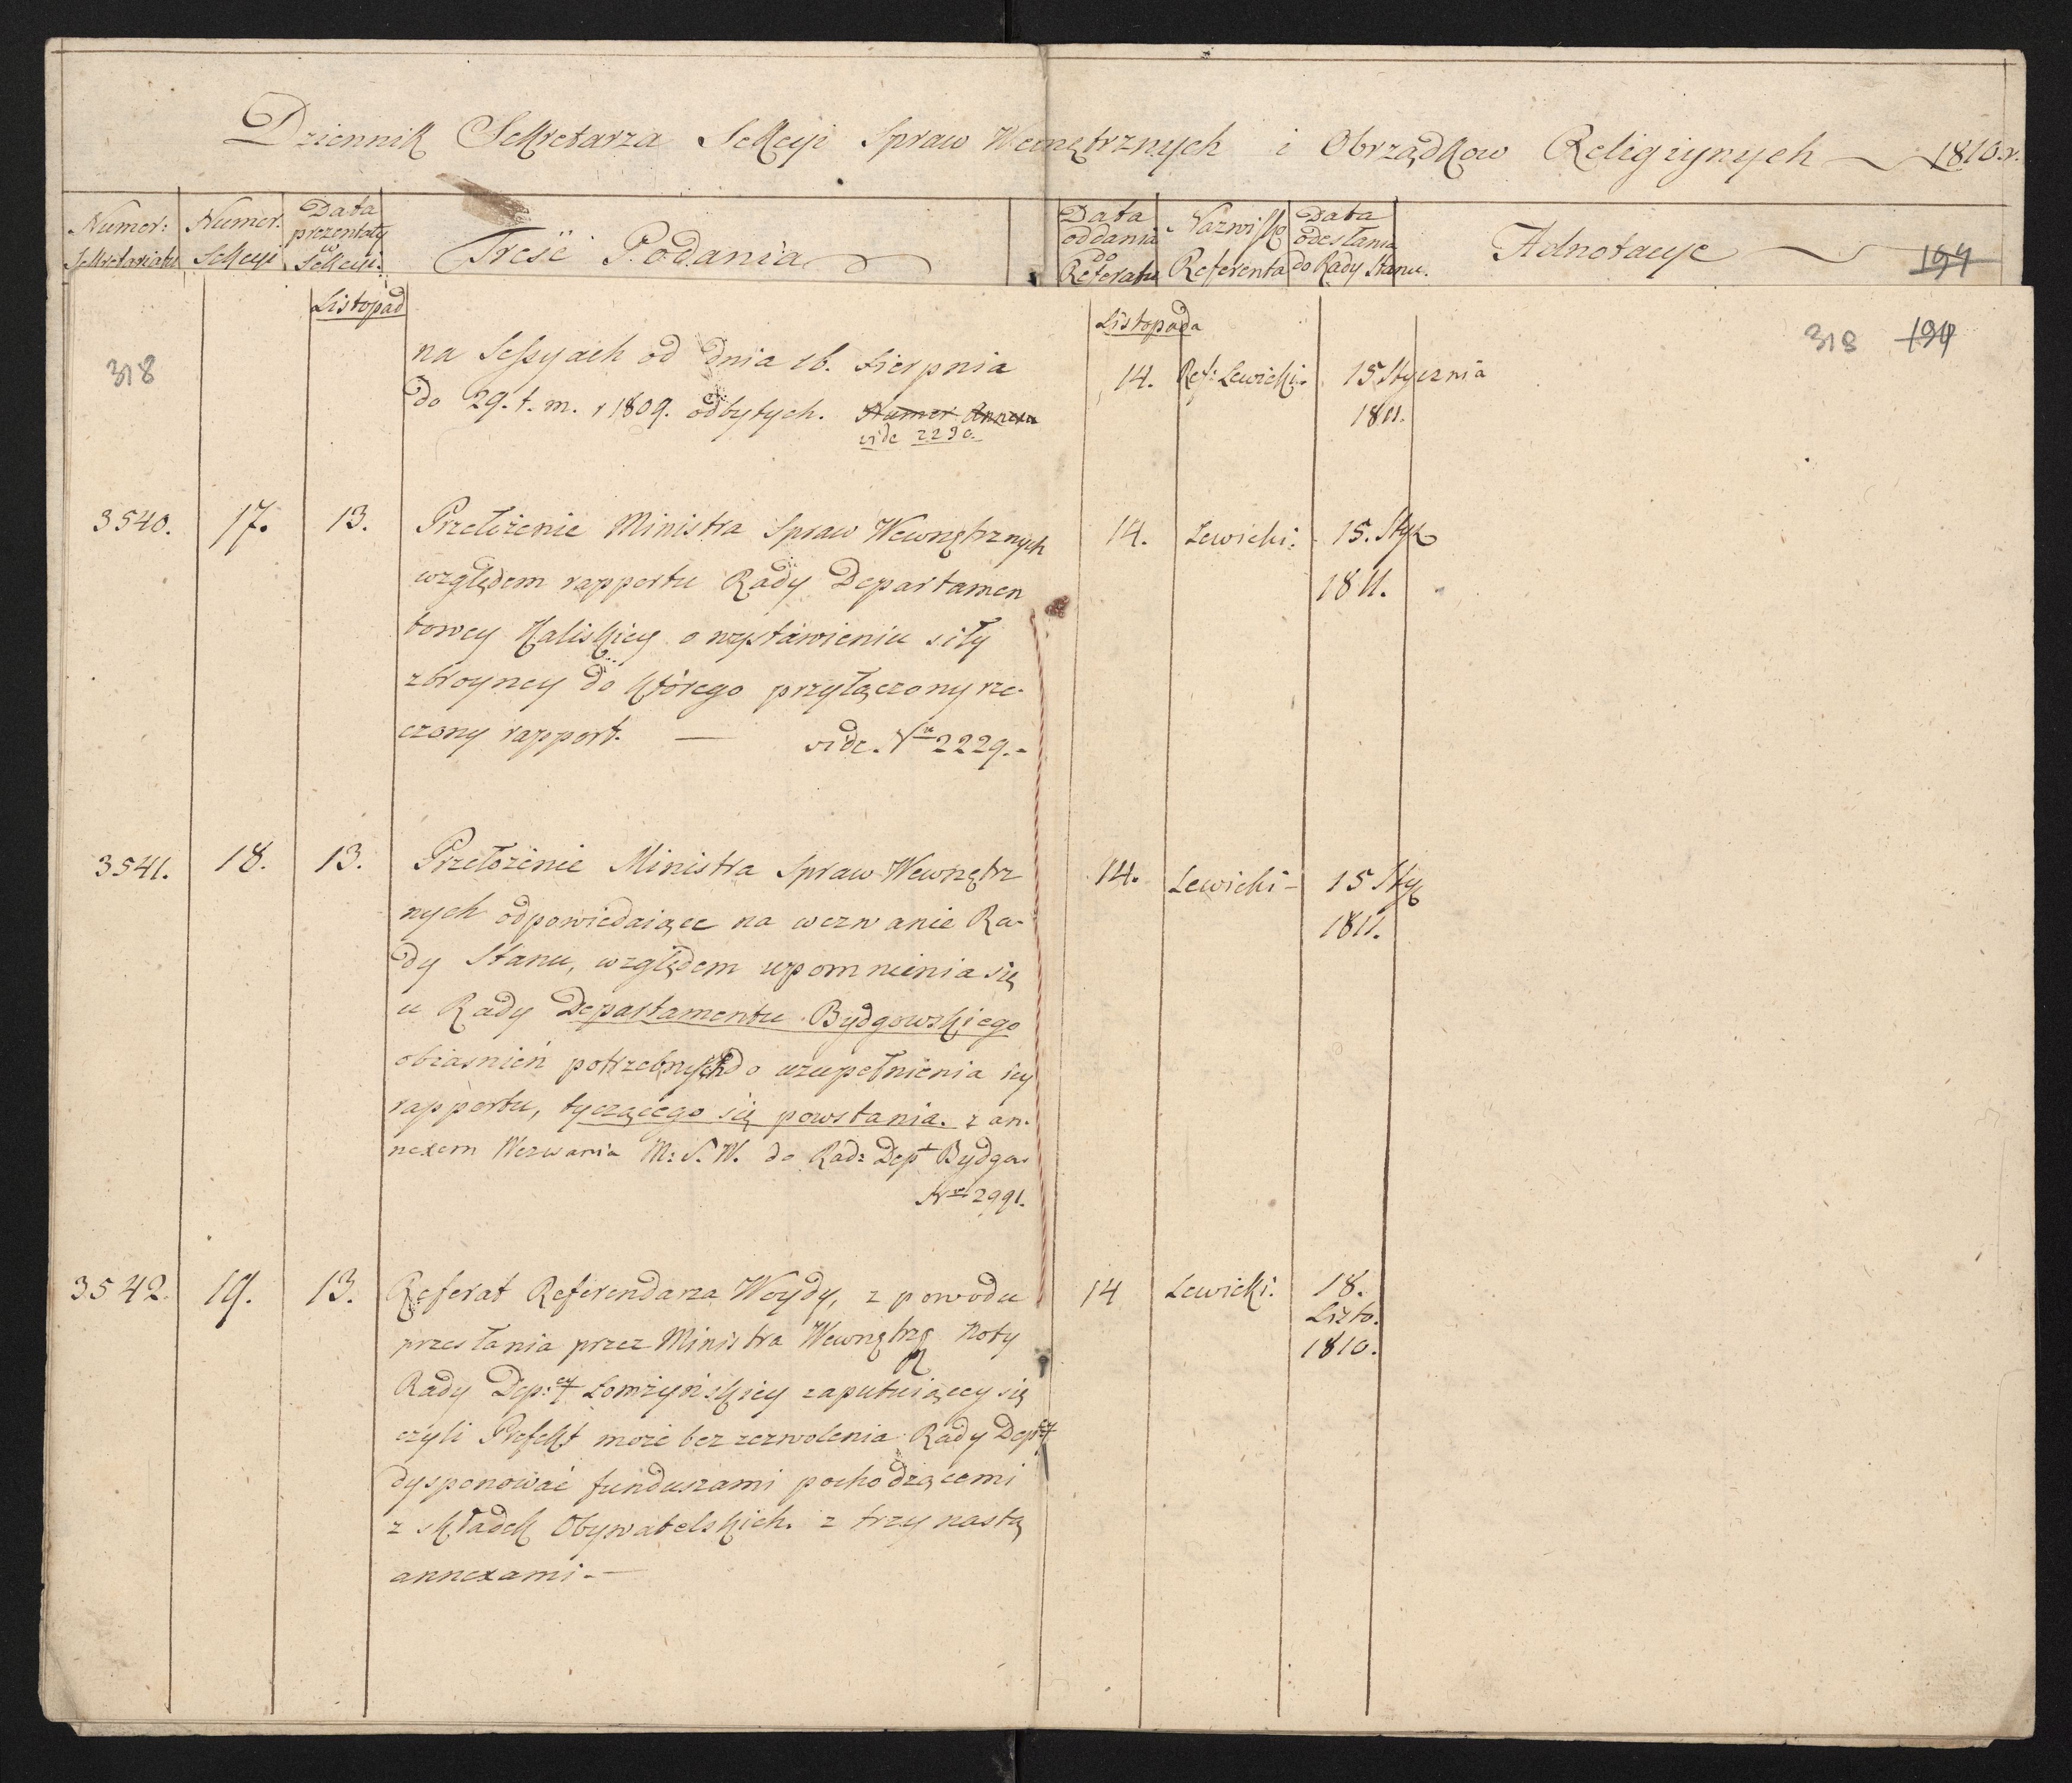 Dziennik Sekretarza Sekcyi Spraw Wewnętrznych i Obrządkow Religiynych 1810. r.
Numer: Sekretariatu
Numer. Sekcyi
Data prezentaty w Sekcyi
Treść Podania
Data oddania do Referatu
Nazwisko Referenta
Data odesłania do Rady Stanu.
Adnotacye
194
Listopad
Listopada
318
319 194
na Sessyach od dnia 16. Sierpnia
14. Ref: Lewicki. 15 Stycznia
do 29. t. m. r 1809. odbytych. Numer Annexu
1811.
vide 2290.
3540. 17. 13. Przełożenie Ministra Spraw Wewnętrznych 14. Lewicki. 15. Stycz
względem rapportu Rady Departamen 1811.
towey Kaliskiey o wystawieniu siły
zbroyney do którego przyłączony rze-
czony rapport. — vide. Nr 2229.-
3541. 18. 13. Przełożenie Ministra Spraw Wewnętrz 14. Lewicki- 15 Stycz
nych odpowiedaiące na wezwanie Ra- 1811.
dy Stanu, względem upomnienia się
u Rady Departamentu Bydgowskiego
obiasnień potrzebnych do uzupełnienia iey
rapportu, tyczącego się powstania. z an-
nexem Wezwania M: S. W. do Rad: Dept Bydgo.
Nr 2991.
3542. 19. 13. Referat Referendarza Woydy, z powodu 14 Lewicki. 18.
Listo.
przesłania przez Ministra Wewnętrz Noty 1810.
Rady Dep:ey Łomżyńskiey zaputuiącey się
czyli Prefekt może bez zezwolenia Rady Dep:ey
dysponować funduszami pochodzącemi
z składek Obywatelskich. z trzynastą
annexami.—